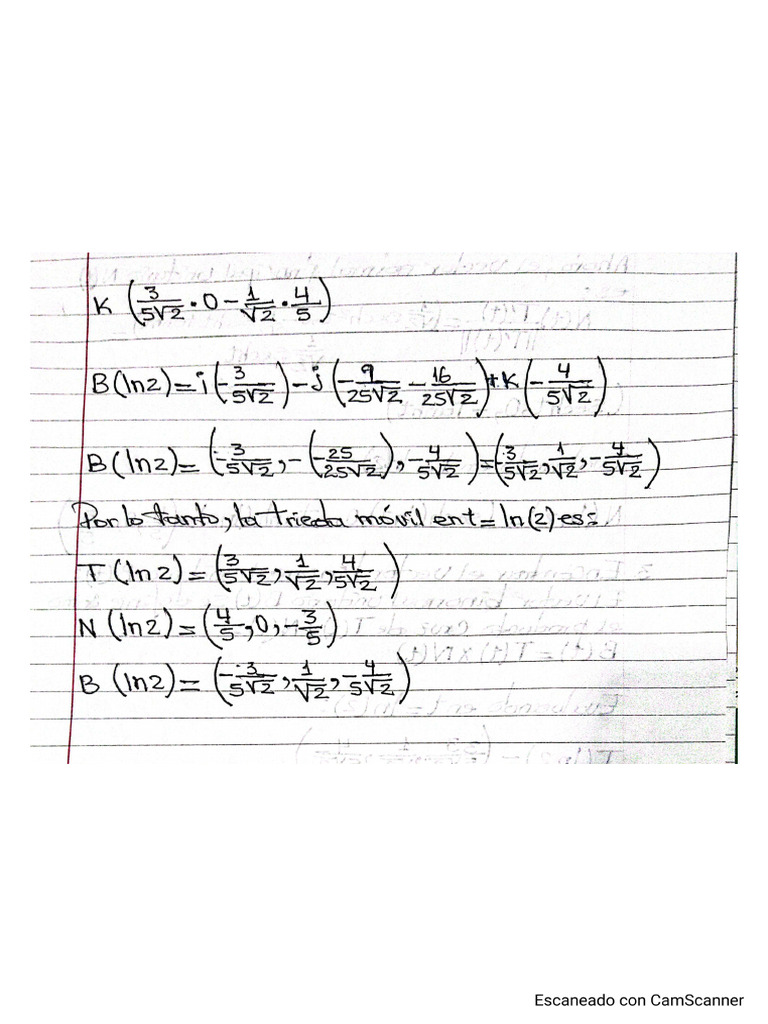 K (3/5√2 · 0 - 1/√2 · 4/5)
B(ln2) = i(-3/5√2) - j(-9/25√2 - 16/25√2) + K(-4/5√2)
B(ln2) = (-3/5√2, -(-25/25√2), -4/5√2) = (-3/5√2, 1/√2, -4/5√2)
Por lo tanto, la trieda móvil en t = ln(2) es:
T (ln2) = (3/5√2, 1/√2, 4/5√2)
N (ln2) = (4/5, 0, -3/5)
B (ln2) = (-3/5√2, 1/√2, -4/5√2)
Escaneado con CamScanner